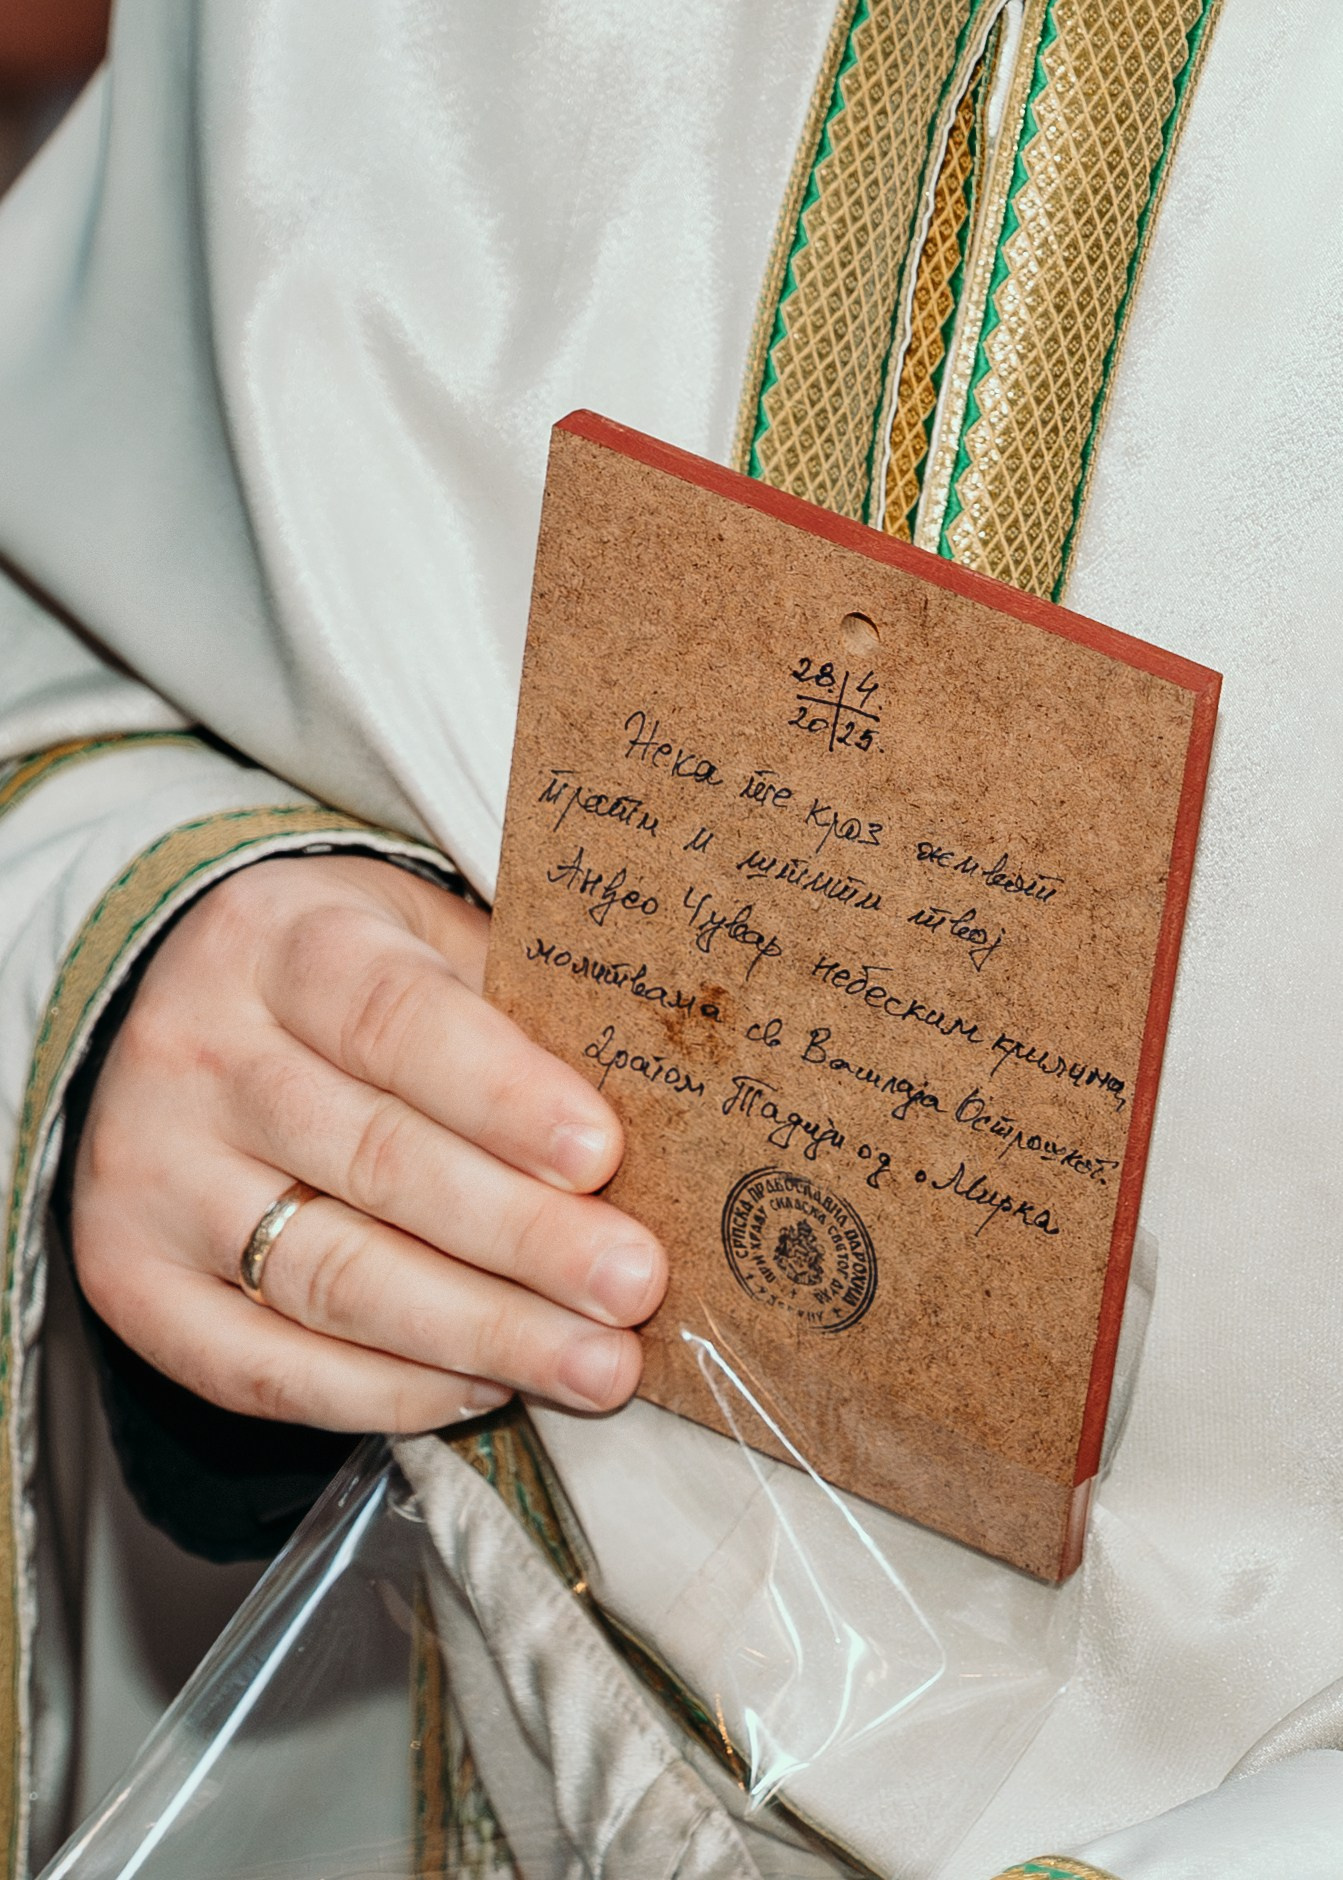 28. 4.
20 25.
Нека те кроз живот
прати и штити твој
Анђео Чувар небеским крилима,
молитвама св Василија Острошког.
Драгом Тадији од о Мирка
СРПСКА ПРАВОСЛАВНА ПАРОХИЈА
ПРИ ХРАМУ СИЛАСКА СВЕТОГ ДУХА